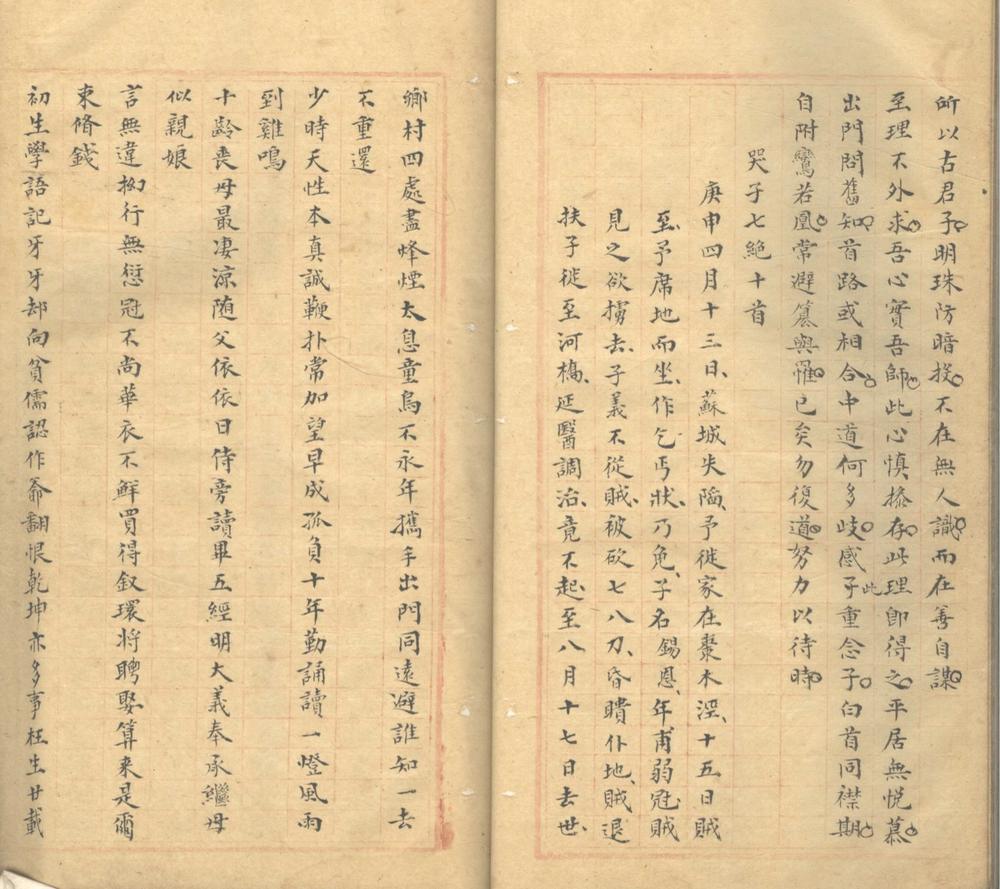 所以古君子明珠防暗投不在無人識而在善自謀
至理不外求吾心實吾師此心慎操存此理即得之平居無悅慕
出門問舊知首路或相合中道何多歧感此子重念子白首同襟期
自附鸞若凰常避篡與羅已矣勿復道努力以待時
哭子七絕十首
庚申四月十三日蘇城失陷予徙家在棗木涇十五日賊
至予席地而坐作乞丐狀乃免子名錫恩年甫弱冠賊
見之欲擄去子義不從賊被砍七八刀昏聵仆地賊退
扶子徙至河橋延醫調治竟不起至八月十七日去世
鄉村四處盡烽煙太息童烏不永年攜手出門同遠避誰知一去
不重還
少時天性本真誠鞭扑常加望早成孤負十年勤誦讀一燈風雨
到雞鳴
十齡喪母最凄涼随父依依日侍旁讀畢五經明大義奉承繼母
似親娘
言無違拗行無愆冠不尚華衣不鮮買得釵環將聘娶算来是爾
束脩錢
初生學語記牙牙却向貧儒認作爺翻恨乾坤亦多事枉生廿載